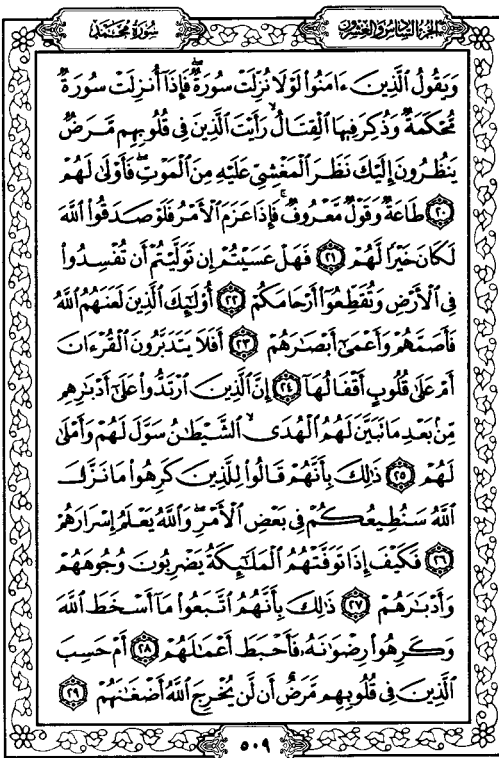 سُورَةُ مُحَمَّد
الجزء السادس والعشرون
وَيَقُولُ ٱلَّذِينَ ءَامَنُوا۟ لَوْلَا نُزِّلَتْ سُورَةٌ ۖ فَإِذَآ أُنزِلَتْ سُورَةٌ
مُّحْكَمَةٌ وَذُكِرَ فِيهَا ٱلْقِتَالُ ۙ رَأَيْتَ ٱلَّذِينَ فِى قُلُوبِهِم مَّرَضٌ
يَنظُرُونَ إِلَيْكَ نَظَرَ ٱلْمَغْشِىِّ عَلَيْهِ مِنَ ٱلْمَوْتِ ۖ فَأَوْلَىٰ لَهُمْ
٢٠ طَاعَةٌ وَقَوْلٌ مَّعْرُوفٌ ۚ فَإِذَا عَزَمَ ٱلْأَمْرُ فَلَوْ صَدَقُوا۟ ٱللَّهَ
لَكَانَ خَيْرًا لَّهُمْ ٢١ فَهَلْ عَسَيْتُمْ إِن تَوَلَّيْتُمْ أَن تُفْسِدُوا۟
فِى ٱلْأَرْضِ وَتُقَطِّعُوٓا۟ أَرْحَامَكُمْ ٢٢ أُو۟لَٰٓئِكَ ٱلَّذِينَ لَعَنَهُمُ ٱللَّهُ
فَأَصَمَّهُمْ وَأَعْمَىٰٓ أَبْصَٰرَهُمْ ٢٣ أَفَلَا يَتَدَبَّرُونَ ٱلْقُرْءَانَ
أَمْ عَلَىٰ قُلُوبٍ أَقْفَالُهَآ ٢٤ إِنَّ ٱلَّذِينَ ٱرْتَدُّوا۟ عَلَىٰٓ أَدْبَٰرِهِم
مِّنۢ بَعْدِ مَا تَبَيَّنَ لَهُمُ ٱلْهُدَى ۙ ٱلشَّيْطَٰنُ سَوَّلَ لَهُمْ وَأَمْلَىٰ
لَهُمْ ٢٥ ذَٰلِكَ بِأَنَّهُمْ قَالُوا۟ لِلَّذِينَ كَرِهُوا۟ مَا نَزَّلَ
ٱللَّهُ سَنُطِيعُكُمْ فِى بَعْضِ ٱلْأَمْرِ ۖ وَٱللَّهُ يَعْلَمُ إِسْرَارَهُمْ
٢٦ فَكَيْفَ إِذَا تَوَفَّتْهُمُ ٱلْمَلَٰٓئِكَةُ يَضْرِبُونَ وُجُوهَهُمْ
وَأَدْبَٰرَهُمْ ٢٧ ذَٰلِكَ بِأَنَّهُمُ ٱتَّبَعُوا۟ مَآ أَسْخَطَ ٱللَّهَ
وَكَرِهُوا۟ رِضْوَٰنَهُۥ فَأَحْبَطَ أَعْمَٰلَهُمْ ٢٨ أَمْ حَسِبَ
ٱلَّذِينَ فِى قُلُوبِهِم مَّرَضٌ أَن لَّن يُخْرِجَ ٱللَّهُ أَضْغَٰنَهُمْ ٢٩
٥٠٩